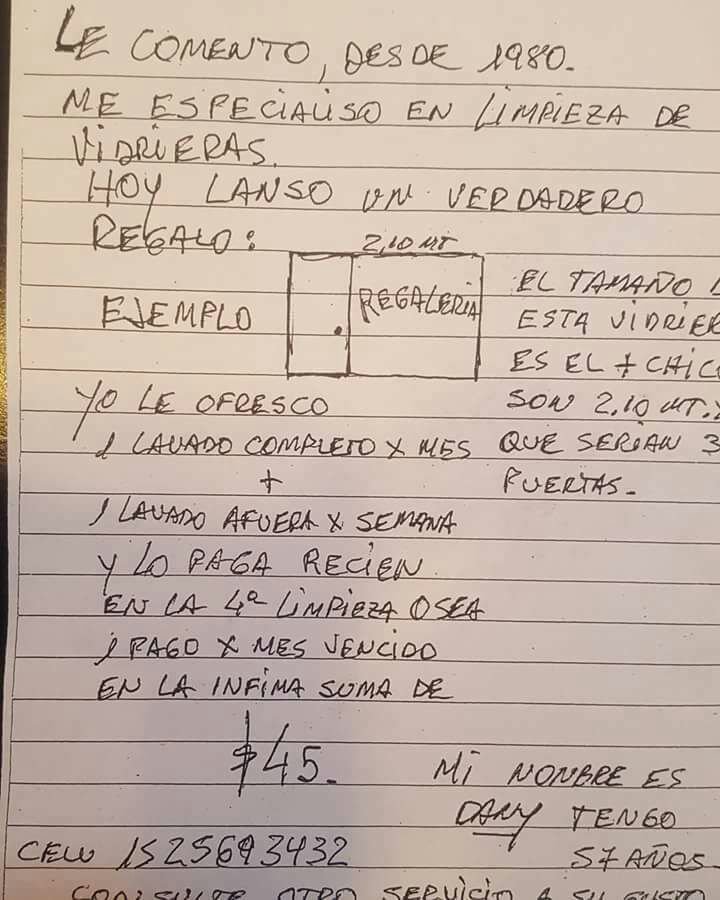 LE COMENTO, DESDE 1980.
ME ESPECIALISO EN LIMPIEZA DE
VIDRIERAS.
HOY LANSO UN VERDADERO
REGALO:
2,10 MT
EJEMPLO
REGALERIA
EL TAMAÑO
ESTA VIDRIER
ES EL + CHIC
SON 2,10 MT.
QUE SERIAN 3
PUERTAS.
YO LE OFRESCO
1 LAVADO COMPLETO X MES
+
1 LAVADO AFUERA X SEMANA
Y LO PAGA RECIEN
EN LA 4ª LIMPIEZA OSEA
1 PAGO X MES VENCIDO
EN LA INFIMA SUMA DE
$45.
MI NONBRE ES
DANY TENGO
57 AÑOS.
CELU 1525693432
CONSULTE OTRO SERVICIO A SU GUSTO